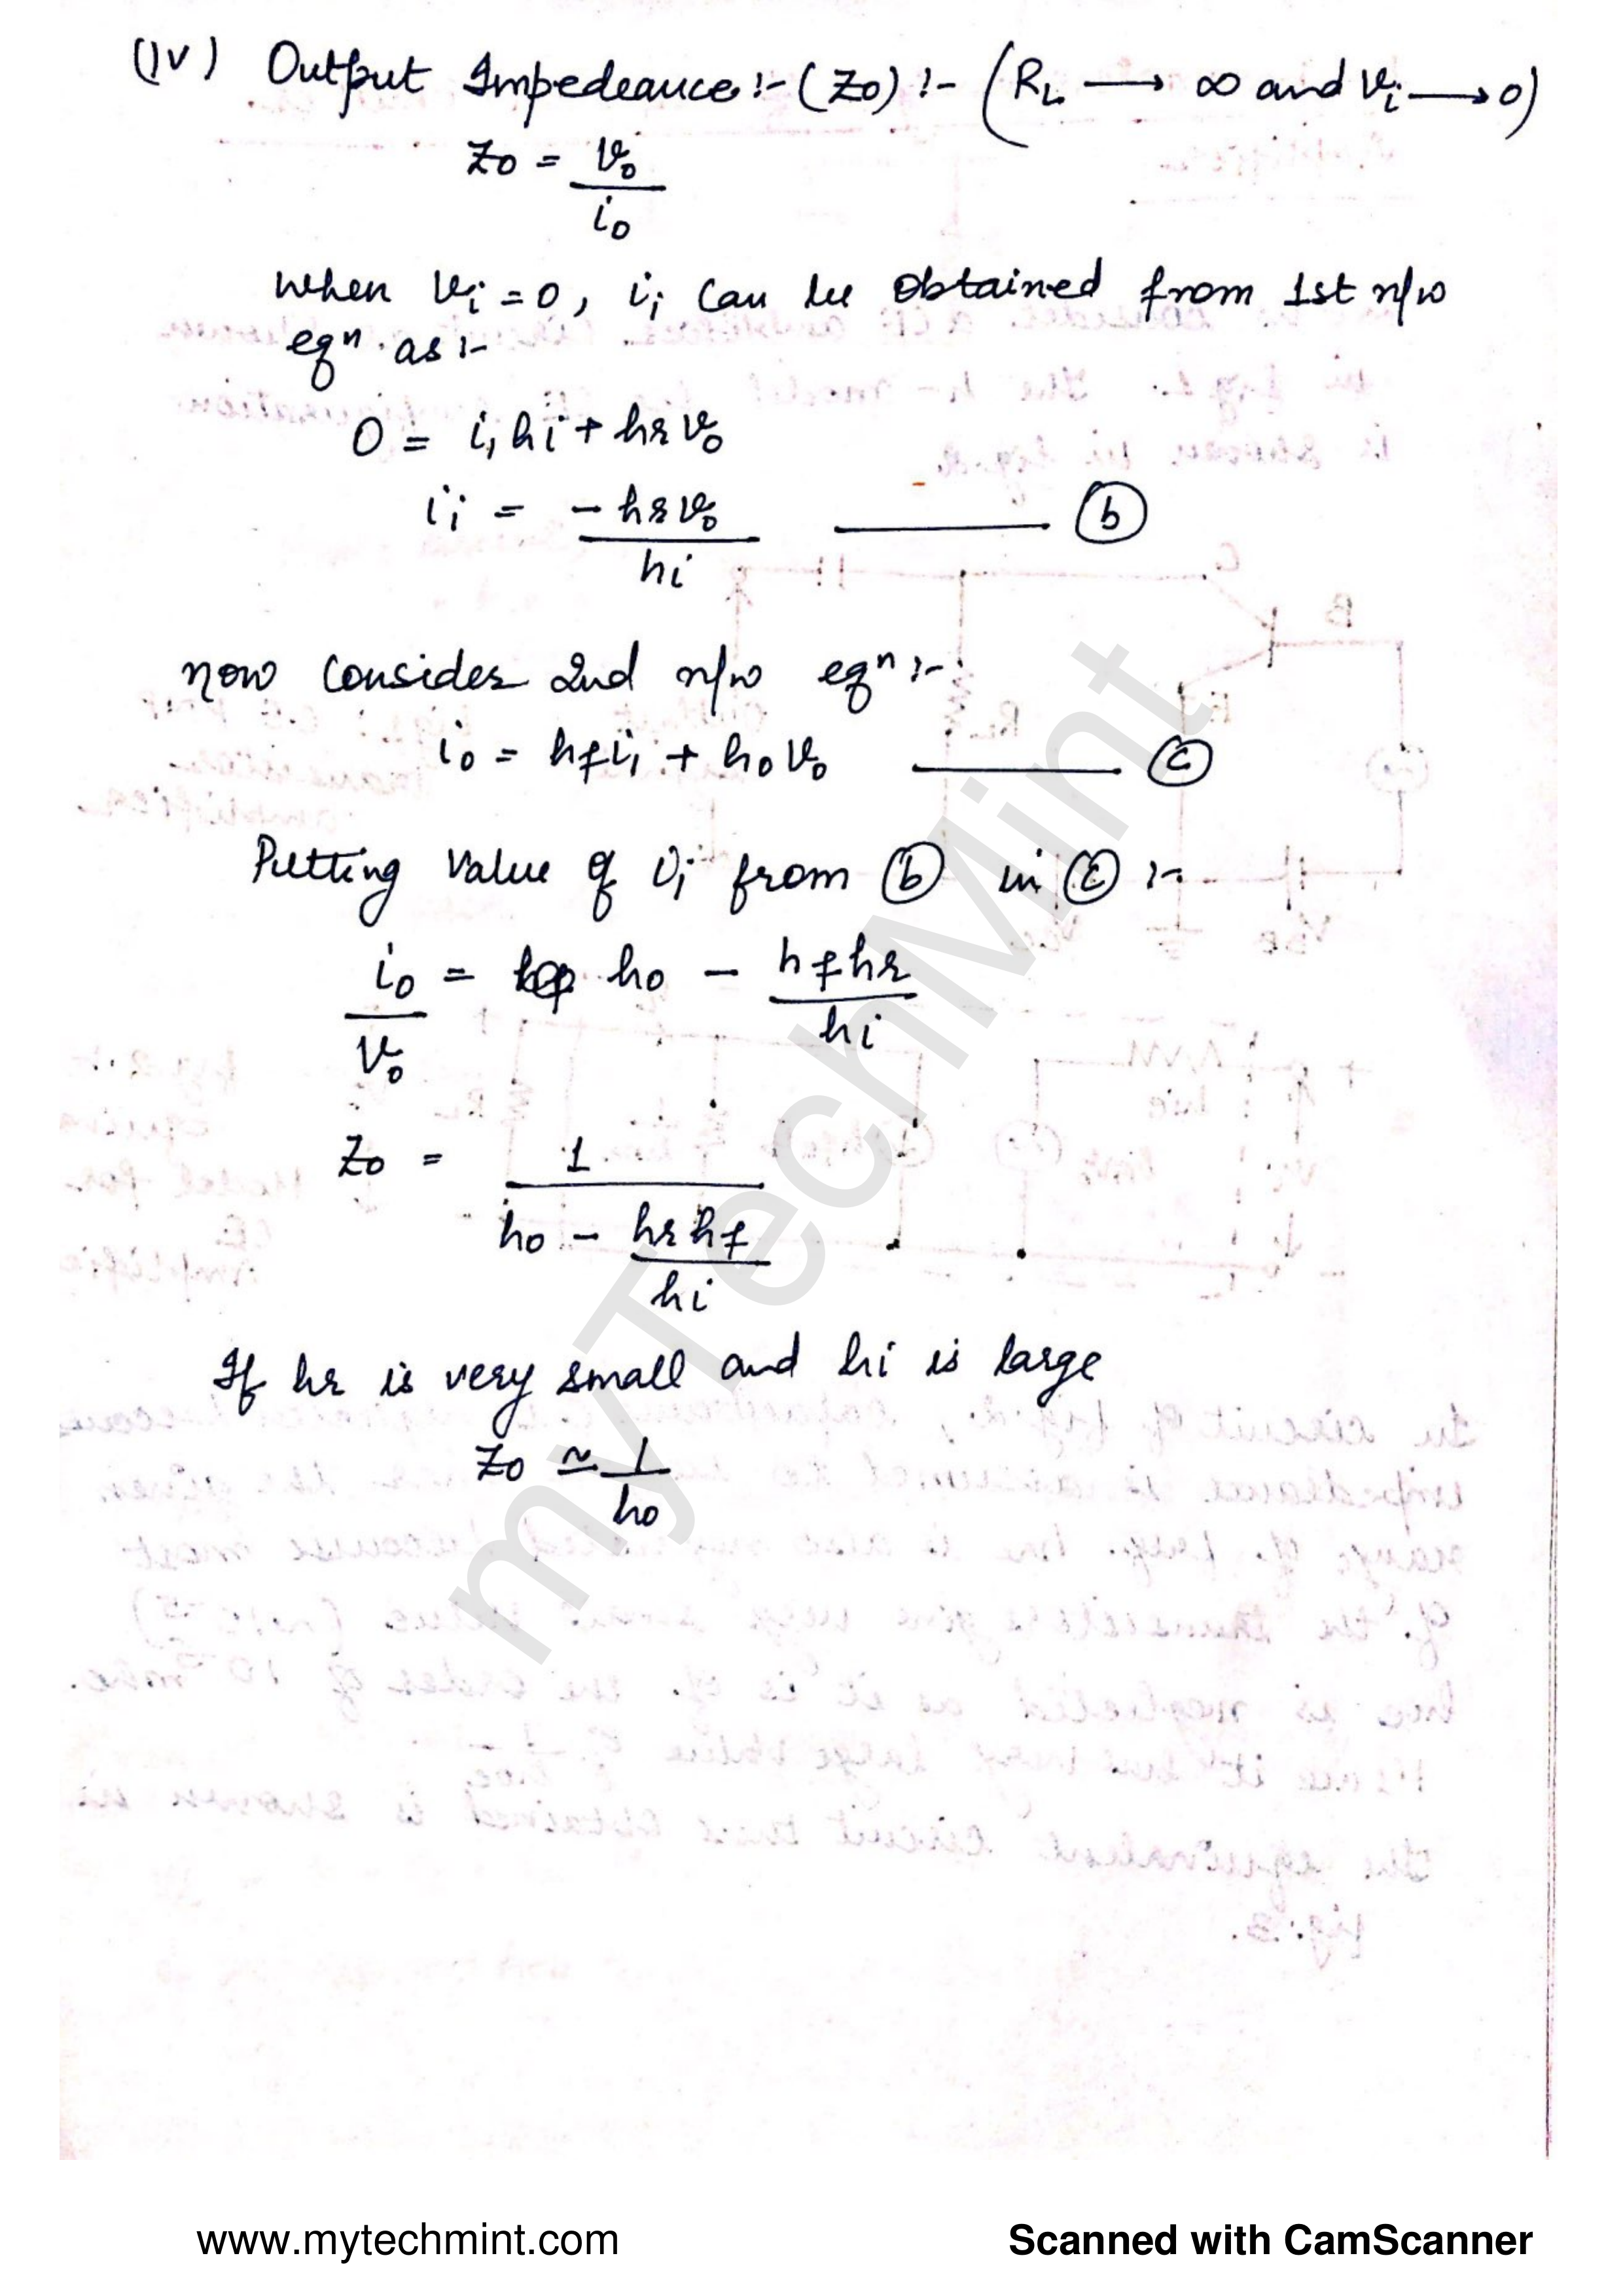 (IV) Output Impedeance :- (Zo) :- (RL → ∞ and vi → 0)
Zo = vo / io
when vi = 0, ii can be obtained from 1st n/w
eqn. as :-
0 = i1 hi + hr vo
ii = -hr vo / hi ——— (b)
now consider 2nd n/w eqn :-
io = hf i1 + ho vo ——— (c)
Putting value of ii from (b) in (c) :-
io / vo = ho - hf hr / hi
Zo = 1 / (ho - hr hf / hi)
If hr is very small and hi is large
Zo ≃ 1 / ho
myTechMint
www.mytechmint.com
Scanned with CamScanner